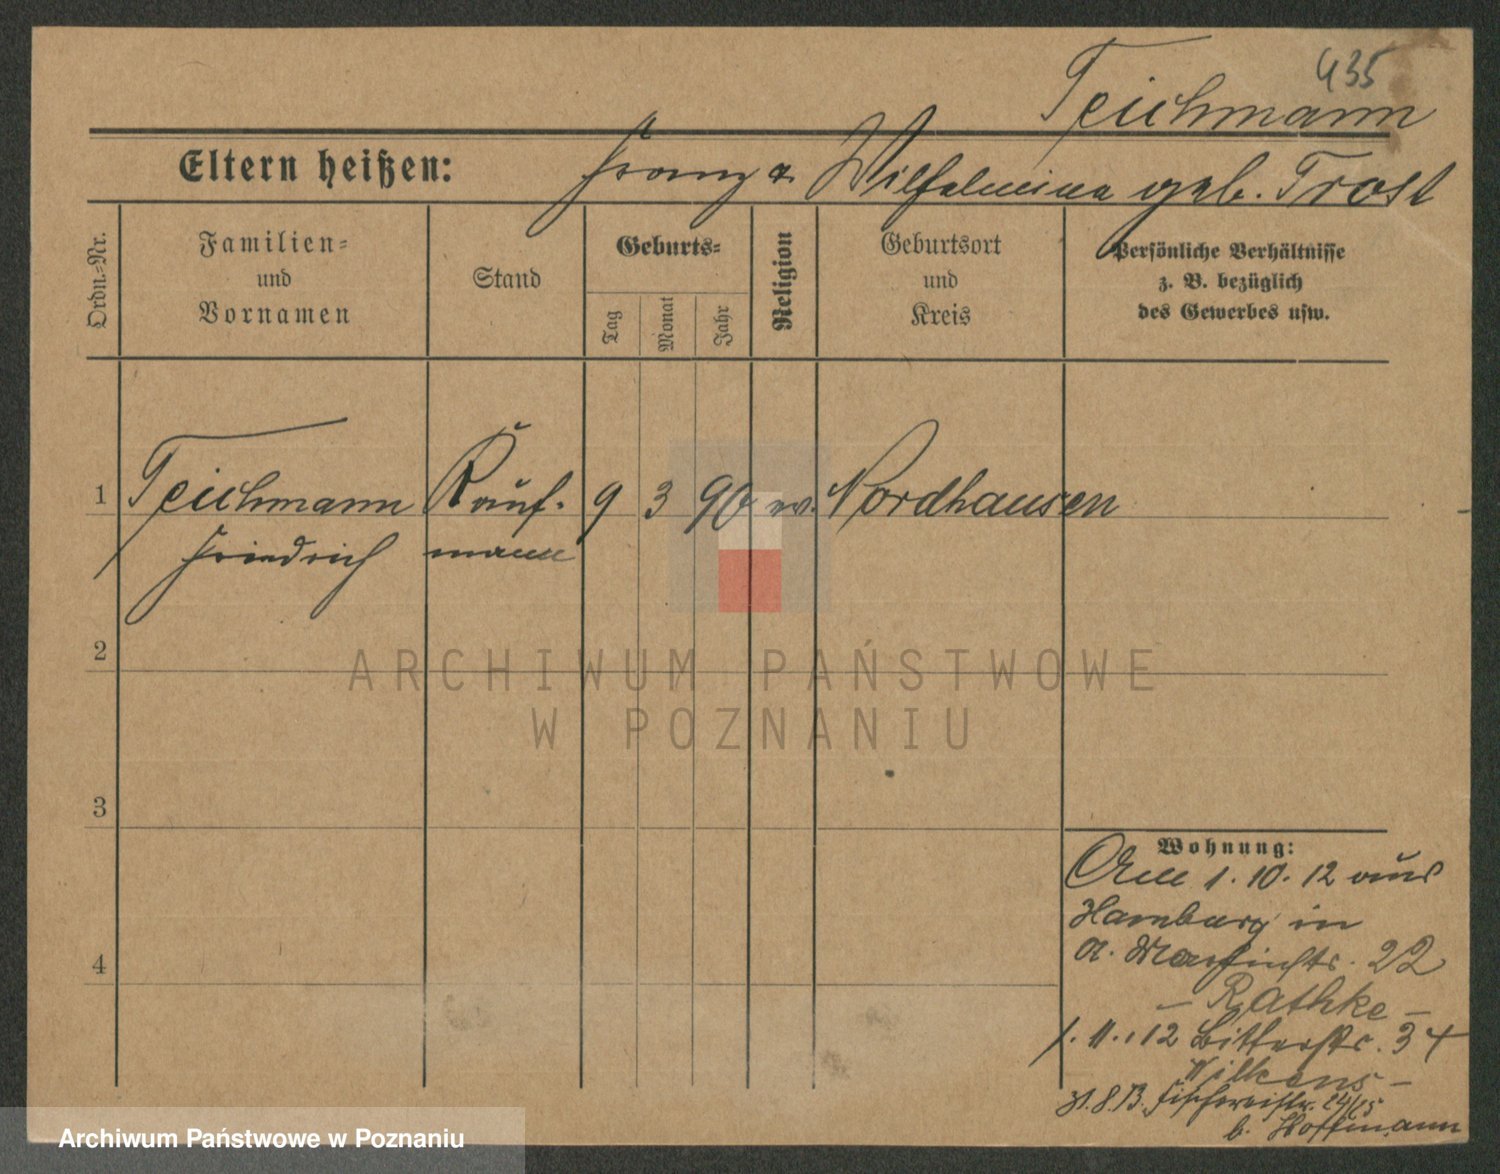 435
Teichmann
Eltern heißen: Franz u. Wilhelmine geb. Trost
Ordn.=Nr.
Familien=
und
Vornamen
Stand
Geburts=
Tag
Monat
Jahr
Religion
Geburtsort
und
Kreis
Persönliche Verhältnisse
z. B. bezüglich
des Gewerbes usw.
1 Teichmann Kauf- 9 3 90 ev. Nordhausen
Friedrich mann
2
3
4
ARCHIWUM PAŃSTWOWE
W POZNANIU
Wohnung:
Am 1.10.12 aus
Hamburg in
22
- Rathke -
1.11.12 Bitterstr. 34
Wilkens -
31.8.13. Fischereistr. 24/25
b. Hoffmann
Archiwum Państwowe w Poznaniu